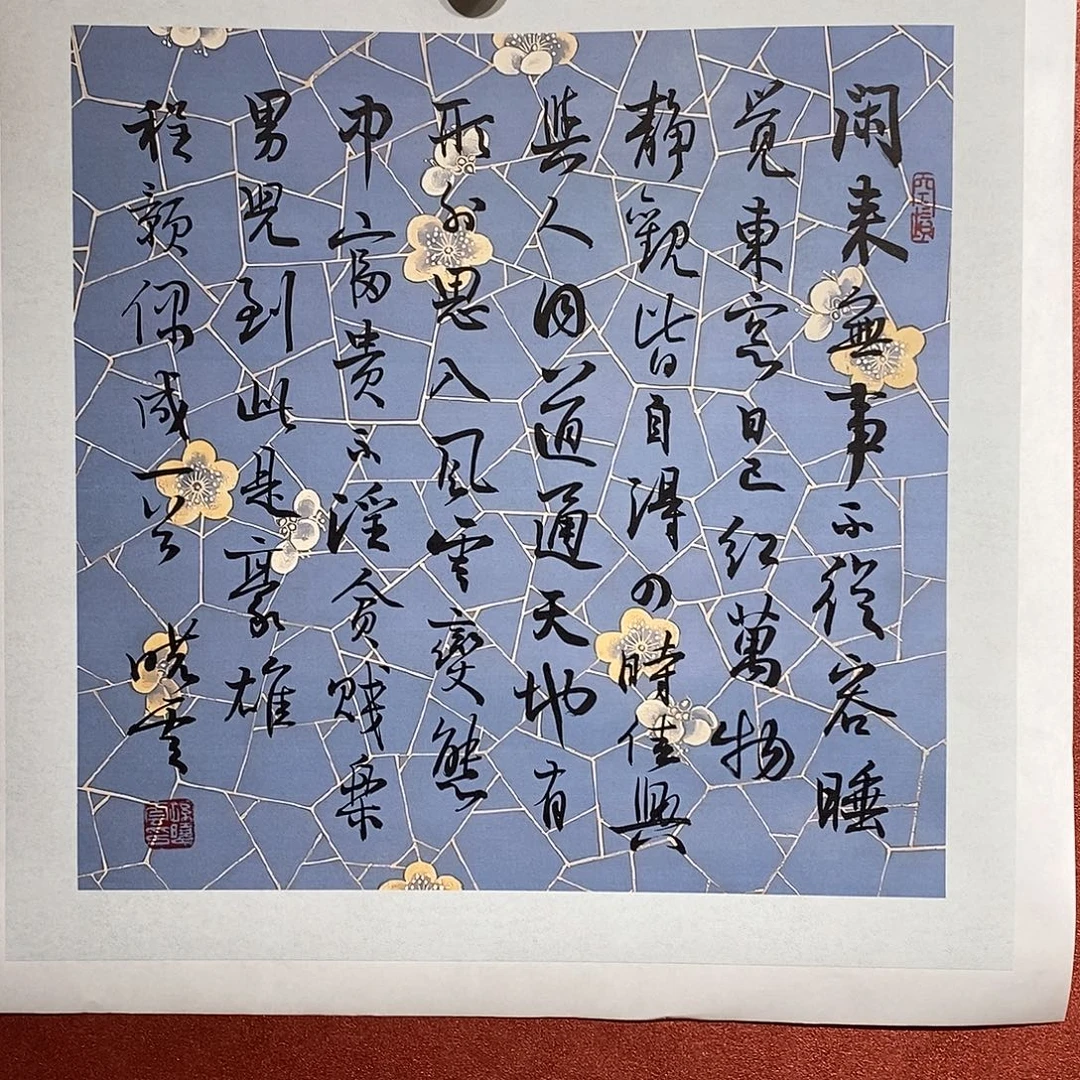 闲来無事不從容睡
觉東窓日已红萬物
静觀皆自得四時佳興
與人同道通天地有
形外思入風雲變態
中富貴不淫貧賤樂
男兒到此是豪雄
程颢偶成一首 曉雲